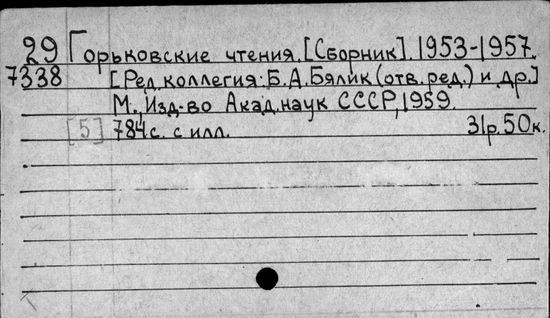 29 Горьковские чтения. [Сборник]. 1953-1957.
7338 [Ред. коллегия: Б. А. Бялик (отв. ред.) и др.]
М., Изд-во Акад. наук СССР, 1959.
[5] 784 с. с илл. 31р. 50к.